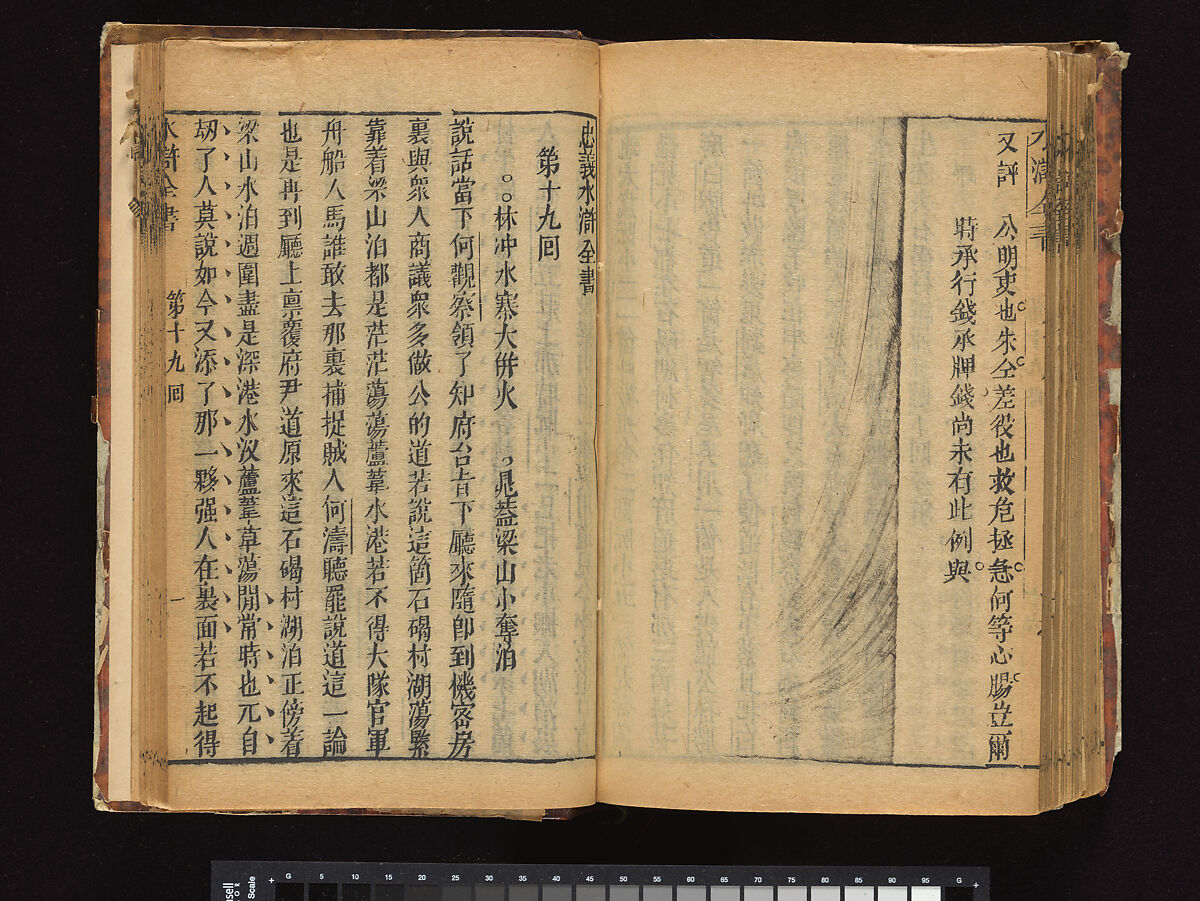 又評 公明吏也朱仝差役也救危拯急何等心腸豈爾
時承行錢承牌錢尚未有此例與
忠義水滸全書
第十九回
林冲水寨大併火 晁蓋梁山小奪泊
說話當下何觀察領了知府台旨下廳來隨卽到機密房
裏與眾人商議眾多做公的道若說這箇石碣村湖蕩緊
靠着梁山泊都是茫茫蕩蕩蘆葦水港若不得大隊官軍
舟船人馬誰敢去那裏捕捉賊人何濤聽罷說道這一論
也是再到廳上禀覆府尹道原來這石碣村湖泊正傍着
梁山水泊週圍盡是深港水汊蘆葦草蕩閒常時也兀自
刼了人莫說如今又添了那一夥强人在裏面若不起得
水滸全書 第十九回 一
G 5 10 15 20 25 30 35 40 45 50 55 60 65 70 75 80 85 90 95 G
Scale